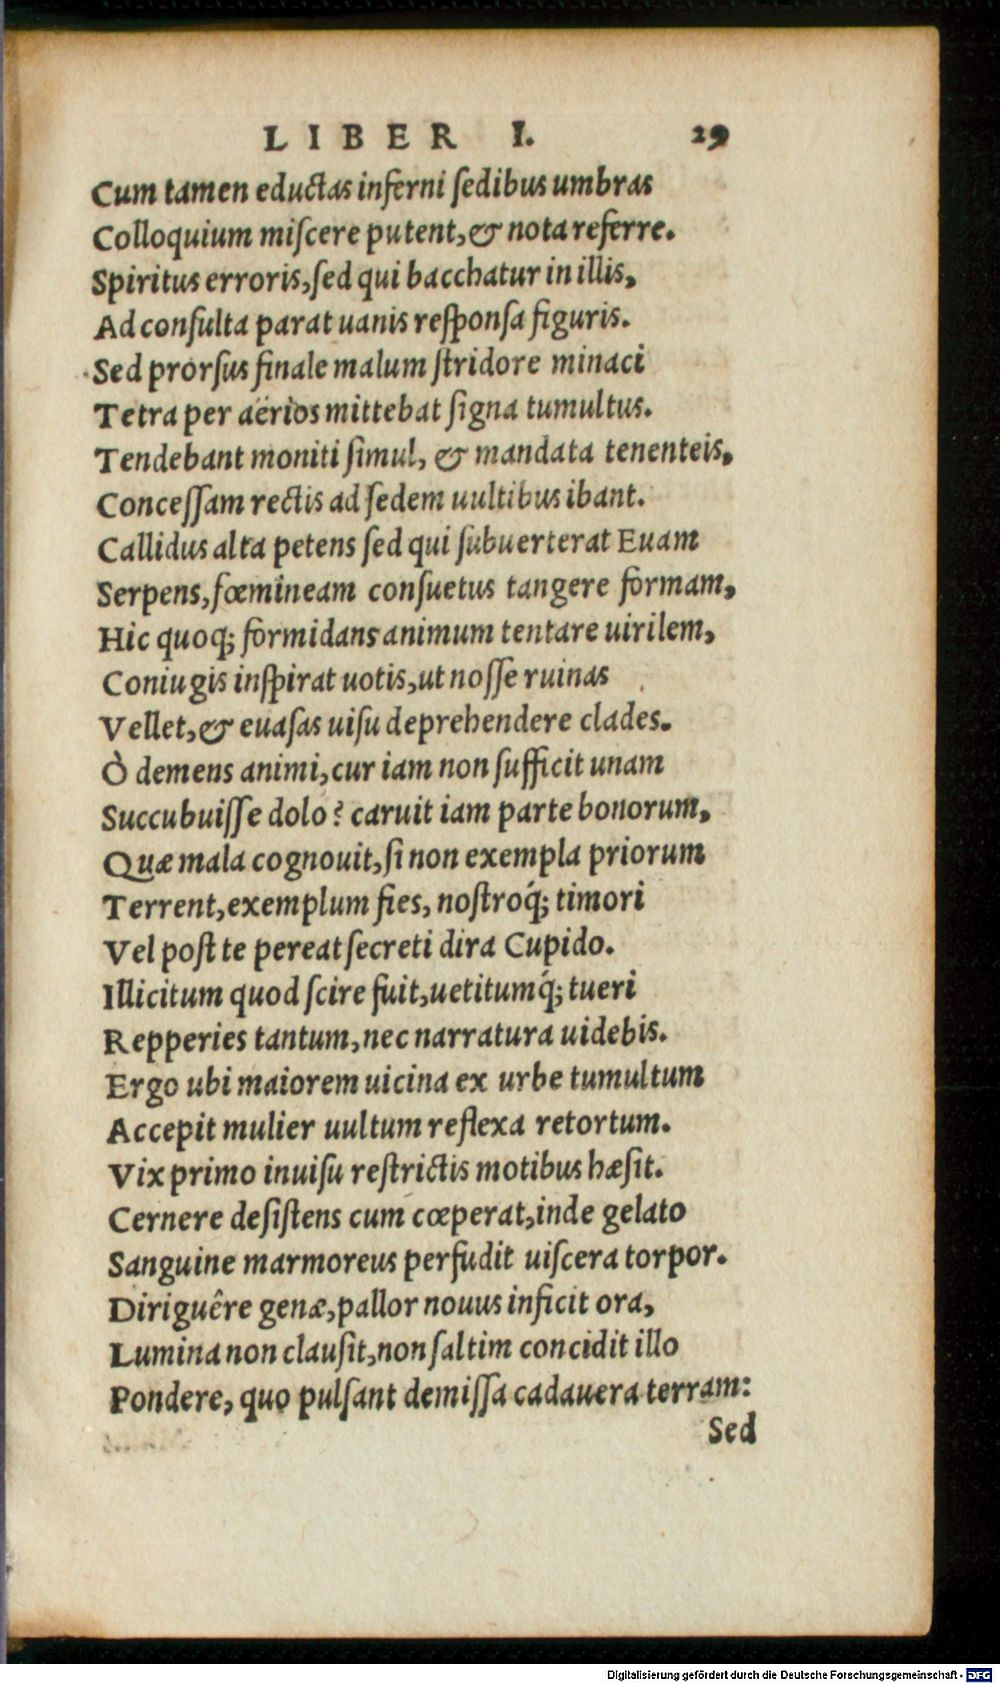 LIBER I. 29
Cum tamen eductas inferni ſedibus umbras
Colloquium miſcere putent, & nota referre.
Spiritus erroris, ſed qui bacchatur in illis,
Ad conſulta parat uanis reſponſa figuris.
Sed prorſus finale malum ſtridore minaci
Tetra per aërios mittebat ſigna tumultus.
Tendebant moniti ſimul, & mandata tenenteis,
Conceſſam rectis ad ſedem uultibus ibant.
Callidus alta petens ſed qui ſubuerterat Euam
Serpens, fœmineam conſuetus tangere formam,
Hic quoq; formidans animum tentare uirilem,
Coniugis inſpirat uotis, ut noſſe ruinas
Vellet, & euaſas uiſu deprehendere clades.
Ò demens animi, cur iam non ſufficit unam
Succubuiſſe dolo? caruit iam parte bonorum,
Quæ mala cognouit, ſi non exempla priorum
Terrent, exemplum fies, noſtroq́; timori
Vel poſt te pereat ſecreti dira Cupido.
Illicitum quod ſcire fuit, uetitumq́; tueri
Repperies tantum, nec narratura uidebis.
Ergo ubi maiorem uicina ex urbe tumultum
Accepit mulier uultum reflexa retortum.
Vix primo inuiſu reſtrictis motibus hæſit.
Cernere deſiſtens cum cœperat, inde gelato
Sanguine marmoreus perfudit uiſcera torpor.
Diriguêre genæ, pallor nouus inficit ora,
Lumina non clauſit, non ſaltim concidit illo
Pondere, quo pulſant demiſſa cadauera terram:
Sed
Digitalisierung gefördert durch die Deutsche Forschungsgemeinschaft - DFG